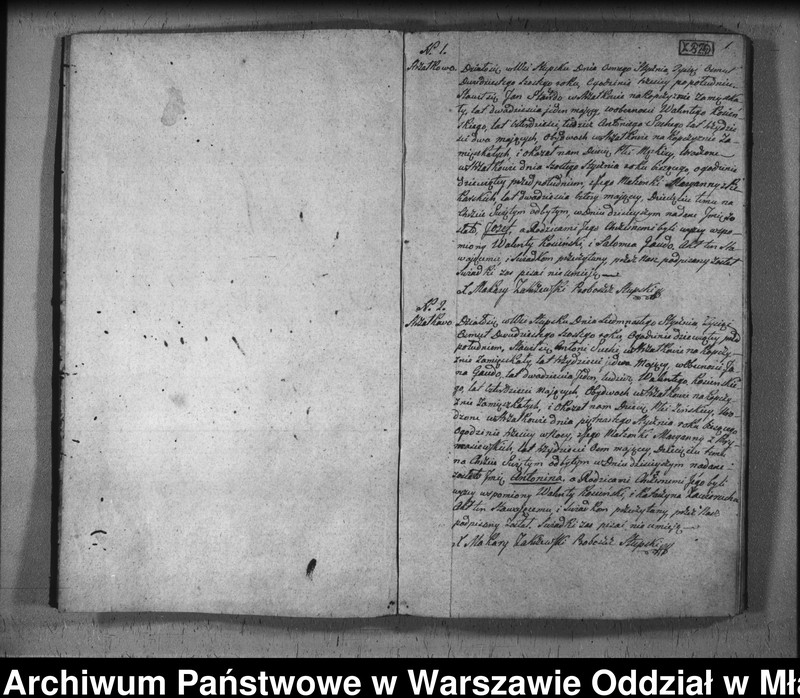 N. 1.
Strzałkowo.
1.
Działo się w Wsi Słupsku Dnia Ósmego Stycznia Tysiąc Osmset
Dwudziestego Szóstego roku, o godzinie trzeciy po południu
Stawił się Jan w Strzałkowie na Kopczyznie zamięszka-
ły, lat dwadzieścia jeden maiący, w obecności Walentego Kosiń-
skiego, lat czterdzieści, tudzież Antoniego Suchego lat trzydzie-
ści dwa maiących, Obydwóch w Strzałkowie na Kopczyznie Za-
mięszkałych, i okazał nam Dziecię Płci Męskiey, Urodzone
w Strzałkowie dnia Szóstego Stycznia roku bieżącego o godzinie
dziewiątey przed południem, z Jego Małżonki Maryanny z
lat dwadzieścia cztery maiący, Dziecięciu temu na
Chrzcie Świętym odbytym, w Dniu dzisieyszym nadane Imię zo-
stało Józef, a Rodzicami Jego Chrzestnemi byli wyżey wspo-
miony Walenty Kosiński, i Salomea Gauda, Akt ten Sta-
waiącemu, i Świadkom przeczytany, przez Nas podpisany został
Świadki zaś pisać nie umieią
X Makary Zakrzewski Proboszcz Słupski
N. 2.
Strzałkowo
Działo się w Wsi Słupsku Dnia Siedmnastego Stycznia Tysiąc
Osmset Dwudziestego Szóstego roku, Ogodzinie dziewiątey przed
południem, Stawił się Antoni Suchi, w Strzałkowie na Kopczy-
znie zamięszkały, lat trzydzieści i dwa maiący, w obecności Ja-
na Gaudo, lat dwadzieścia Jeden, tudzież Walentego Kosińskie-
go, lat czterdzieści maiących, Obydwóch w Strzałkowie na Kopczy-
znie zamięszkałych, i okazał nam Dziecię Płci Żeńskiey, Uro-
dzone w Strzałkowie dnia piętnastego Stycznia roku bieżącego
Ogodzinie trzeciey w Nocy, z Jego Małżonki Maryanny z
lat trzydzieści Osm maiący, Dziecięciu temu
na Chrzcie Świętym odbytym w Dniu dzisieyszym nadane
zostało Imię Antonina, a Rodzicami Chrzesnemi Jego byli
wyżey wspomiony Walenty Kosiński, i Katarzyna Zawierucha
Akt ten Stawaiącemu, i Świadkom przeczytany, przez Nas
podpisany został. Świadki zaś pisać nie umieią
X Makary Zakrzewski Proboszcz Słupski
Archiwum Państwowe w Warszawie Oddział w Mła